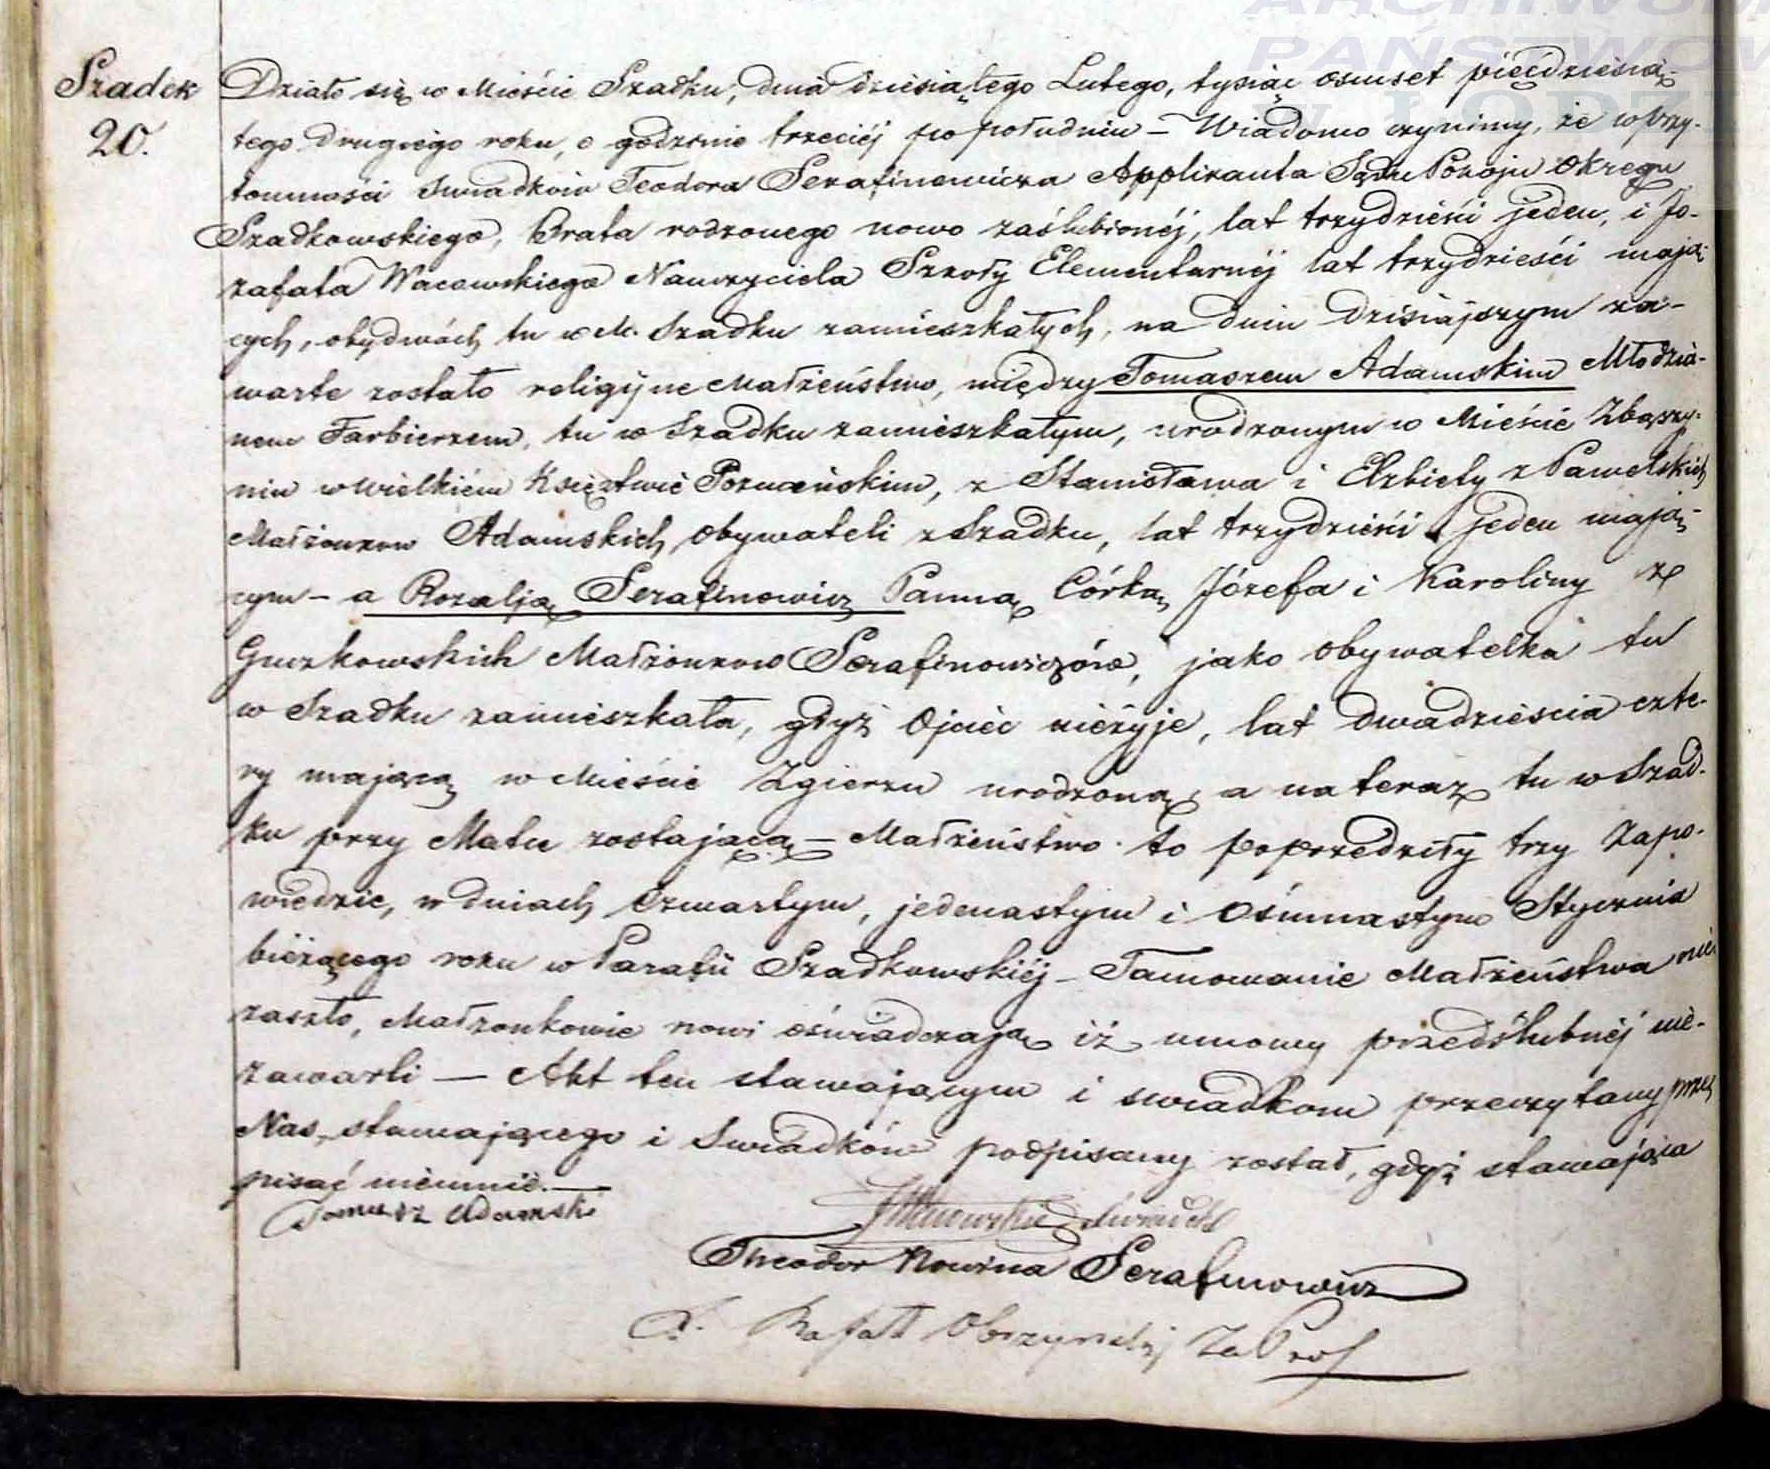 ARCHIWUM
PAŃSTWOW
W ŁODZI
Szadek
20.
Działo się w Mieście Szadku, dnia dziesiątego Lutego, tysiąc osmset pięćdziesią-
tego drugiego roku, o godzinie trzeciéj po południu – Wiadomo czynimy, że w przy-
tomności Swiadków Teodora Serafinowicza Applikanta Sądu Pokoju Okręgu
Szadkowskiego, Brata rodzonego nowo zaślubionéj, lat trzydzieści jeden, i Jo-
zafata Wacowskiego Nauczyciela Szkoły Elementarnéj lat trzydzieści mają-
cych, obydwóch tu w M. Szadku zamieszkałych, na dniu dzisiajszym za-
warte zostało religijne Małżeństwo, między Tomaszem Adamskim Młodzia-
nem Farbierzem, tu w Szadku zamieszkałym, urodzonym w Mieście Zbąszy-
niu w Wielkiém Księztwie Poznańskim, z Stanisława i Elżbiety z Pawelskich
Małżonków Adamskich, obywateli z Szadku, lat trzydzieści jeden mają-
cym – a Rozalją Serafinowicz Panną, Córką Józefa i Karoliny z
Guzkowskich Małżonków Serafinowiczów, jako obywatelka tu
w Szadku zamieszkała, gdyż Ojciec nieżyje, lat dwadzieścia czte-
ry mającą w Mieście Zgierzu urodzoną, a na teraz tu w Szad-
ku przy Matce zostającą – Małżeństwo to poprzedziły trzy Zapo-
wiedzie, w dniach czwartym, jedenastym i Ośmnastym Stycznia
bieżącego roku w Parafii Szadkowskiéj – Tamowanie Małżeństwa nie
zaszło, Małżonkowie nowi oświadczają iż umowy przedślubnéj nie-
zawarli — Akt ten stawającym i swiadkom przeczytany przez
Nas, stawającego i Swiadków podpisany został, gdyż stawająca
pisać nieumie. —
Tomasz Adamski
świadek
Theodor Nowina Serafinowicz
X. Rafał Obrzynskij Za Prob